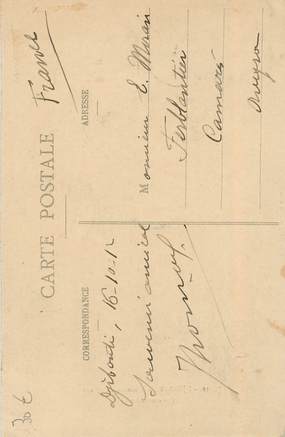 CARTE POSTALE
France
CORRESPONDANCE
Djibouti, 16-10-12
Souvenir amical
ADRESSE
Monsieur E. Moran
Ferblantier
Camarès
Aveyron
30 €